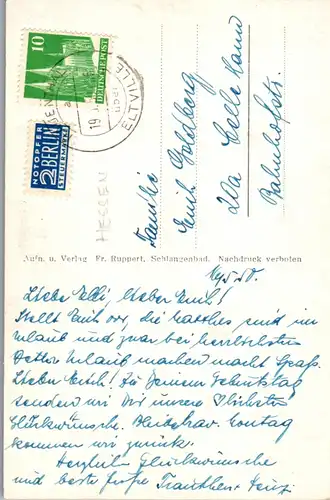 10
DEUTSCHE POST
NOTOPFER
2 BERLIN
STEUERMARKE
ELTVILLE
19
HESSEN
Familie
Emil Goldberg
Celle Hann
Bahnhofstr.
Aufn. u. Verlag Fr. Ruppert, Schlangenbad. Nachdruck verboten
Liebe Elli, lieber Emil!
Stellt Euch vor, die Matthes sind im
Urlaub und zwar bei herrlichstem
Wetter Urlaub machen macht Spaß.
Lieber Emil! Zu Deinem Geburtstag
senden wir Dir unsere herzlichsten
Glückwünsche. Sonntag
kommen wir zurück.
Herzliche Glückwünsche
und beste Grüße